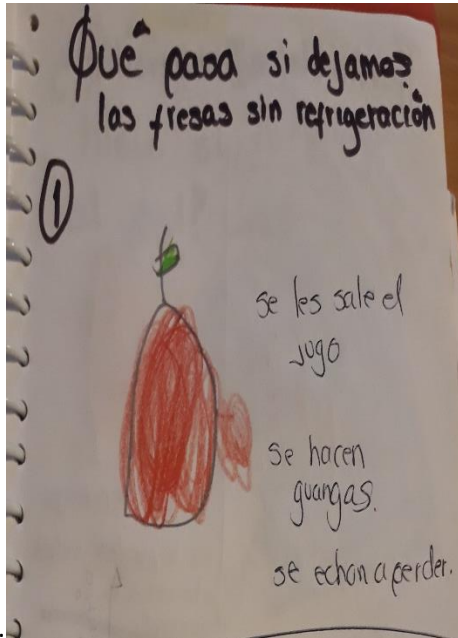 Que pasa si dejamos
las fresas sin refrigeración
1
se les sale el
jugo
se hacen
guangas.
se echan a perder.